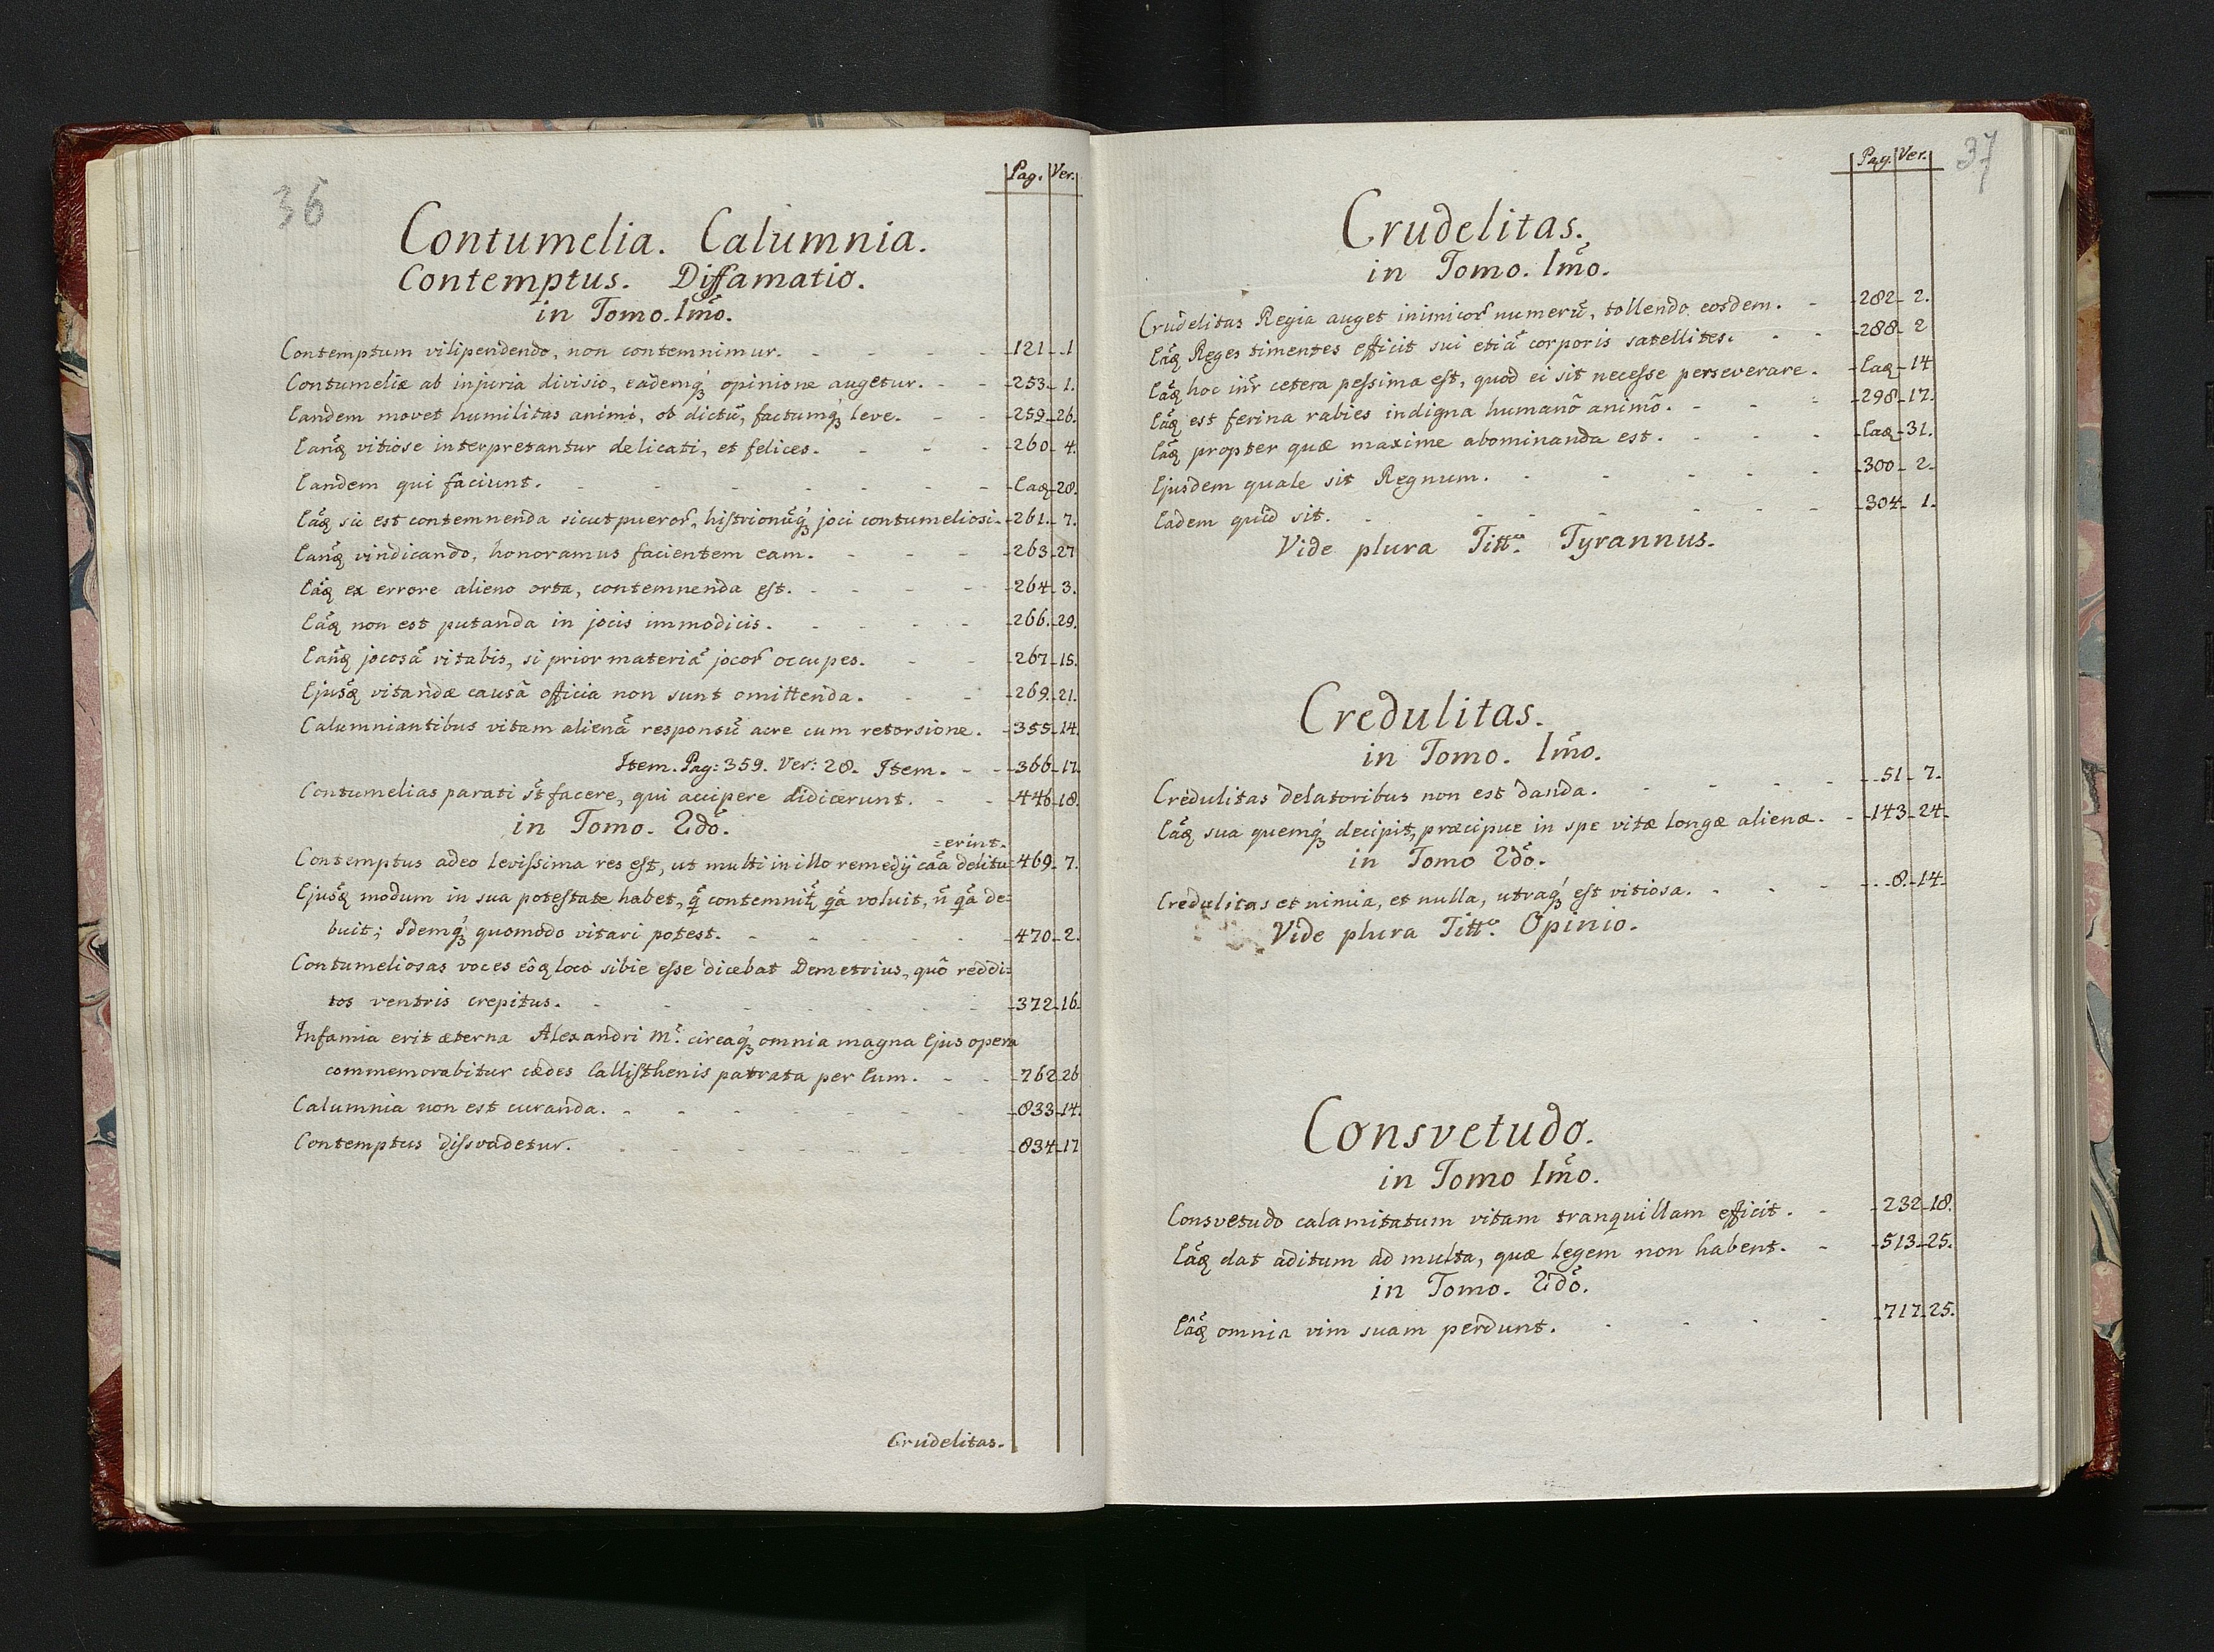 36
Pag. Ver.
Contumelia. Calumnia.
Contemptus. Diffamatio.
in Tomo. Imo.
Contemptum vilipendendo, non contemnimur. 121 1
Contumeliæ ab injuria divisio, eademq́ꝫ opinione augetur. 253 1.
Eandem movet humilitas animi, ob dictū, factumq́ꝫ leve. 259 26.
Eanđꝫ vitiose interpretantur delicati, et felices. 260 4.
Eandem qui faciunt. Eaꝫ 28.
Eađꝫ sic est contemnenda sicut pueror̃, histrionūq́ꝫ joci contumeliosi. 261. 7.
Eanđꝫ vindicando, honoramus facientem eam. 263 27
Eađꝫ ex errore alieno orta, contemnenda est. 264 3.
Eađꝫ non est putanda in jocis immodicis. 266. 29.
Eanđꝫ jocosā vitabis, si prior materiā jocor̃ occupes. 267 15.
Ejusđꝫ vitandæ causā officia non sunt omittenda. 269. 21.
Calumniantibus vitam alienā responsū acre cum retorsione. 355 14.
Item. Pag: 359. Ver: 28. Item. 366 17.
Contumelias parati st̃ facere, qui accipere didicerunt. 446 18.
in Tomo. 2do.
=erint.
Contemptus adeo levissima res est, ut multi in illo remedij cāa delitu= 469 7.
Ejusđꝫ modum in sua potestate habet, q̃ contemnit̃, q̃a voluit, ñ q̃a de=
buit; Idemq́ꝫ quomodo vitari potest. 470 2.
Contumeliosas voces eođꝫ loco sibie esse dicebat Demetrius, quô reddi=
tos ventris crepitus. 372 16.
Infamia erit æterna Alexandri M̃. circaq́ꝫ omnia magna Ejus opera
commemorabitur cædes Callisthenis patrata per Eum. 762 26
Calumnia non est curanda. 833 14.
Contemptus dissvadetur. 834 17
Crudelitas.
37
Pag. Ver.
Crudelitas.
in Tomo. Imo.
Crudelitas Regia auget inimicor̃ numerū, tollendo eosdem. 282 2.
Eađꝫ Reges timentes efficit sui etiā corporis satellites. 288 2
Eađꝫ hoc int̃r cetera pessima est, quod ei sit necesse perseverare. Eaꝫ 14
Eađꝫ est ferina rabies indigna humanô animô. 298 17.
Eađꝫ propter quæ maxime abominanda est. Eaꝫ 31.
Ejusdem quale sit Regnum. 300 2.
Eadem quid sit. 304 1.
Vide plura Titto. Tyrannus.
Credulitas.
in Tomo. Imo.
Credulitas delatoribus non est danda. 51 7.
Eađꝫ sua quemq́ꝫ decipit, præcipue in spe vitæ longæ alienæ. 143 24
in Tomo 2do.
Credulitas et nimia, et nulla, utraq́ꝫ est vitiosa. 8. 14
Vide plura Titto. Opinio.
Consvetudo.
in Tomo Imo.
Consvetudo calamitatum vitam tranquillam efficit. 232 18.
Eađꝫ dat aditum ad multa, quæ legem non habent. 513 25.
in Tomo. 2do.
Eâđꝫ omnia vim suam perdunt. 717 25.